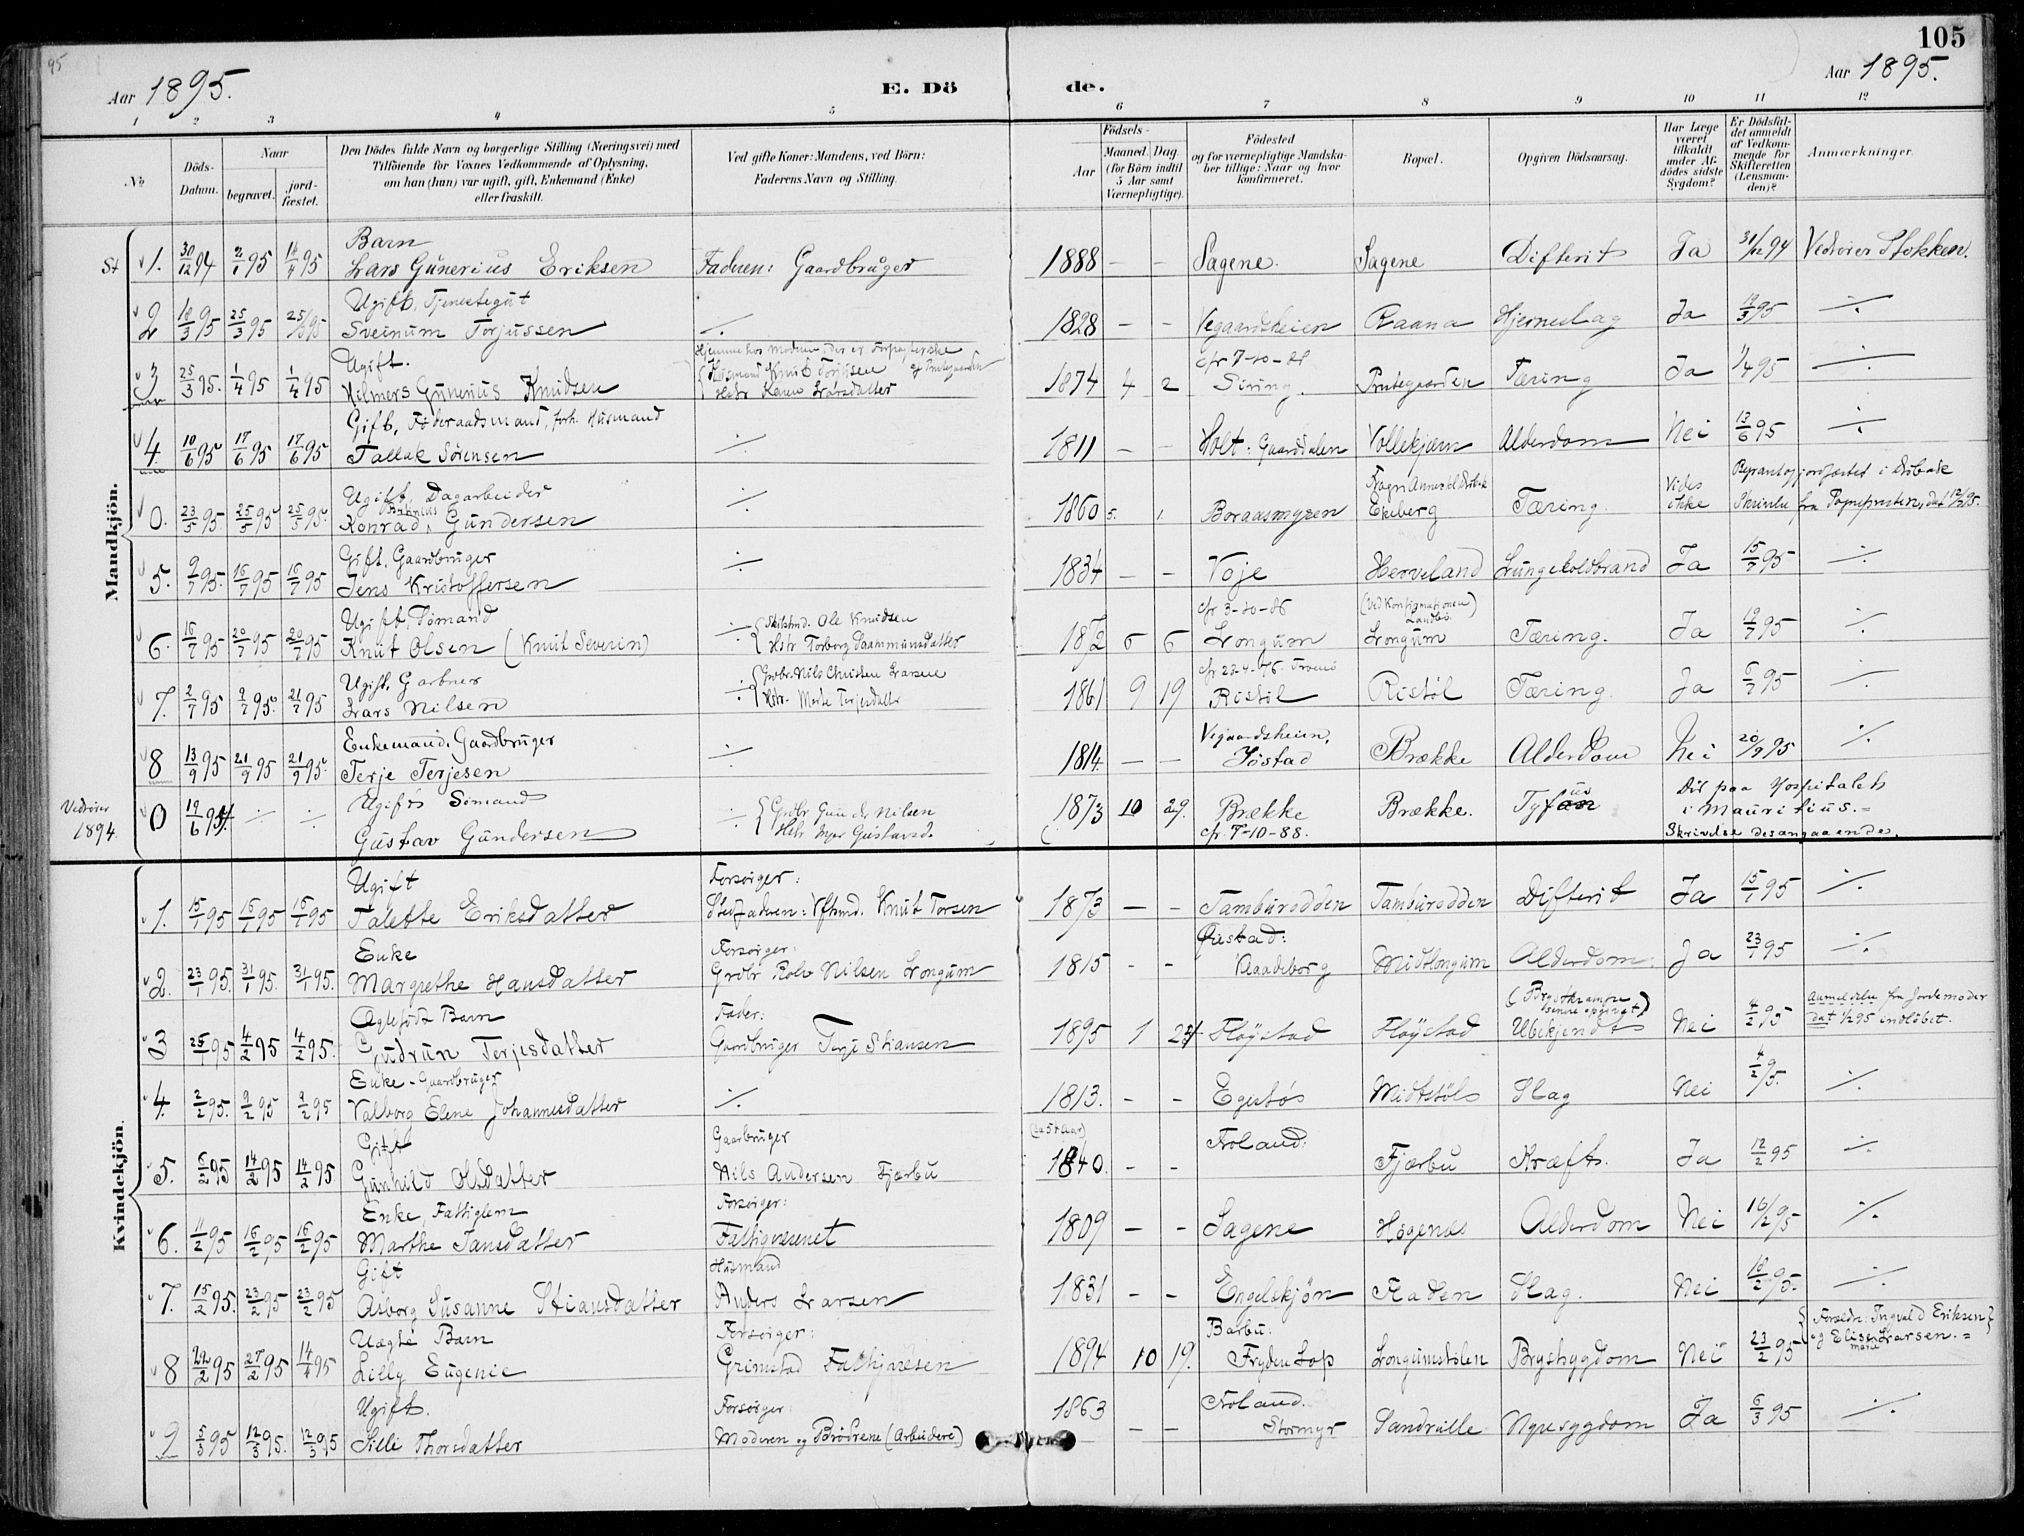 105
95
Aar 1895.
E. Dö de.
Aar 1895.
1 2 3 4 5 6 7 8 9 10 11 12
No
Döds-Datum.
Naar
begravet.
jord-fæstet.
Den Dödes fulde Navn og borgerlige Stilling (Næringsvei) med
Tilföiende for Voxnes Vedkommende af Oplysning,
om han (hun) var ugift, gift, Enkemand (Enke)
eller fraskilt.
Ved gifte Koner: Mandens, ved Börn:
Faderens Navn og Stilling.
Födsels-
Aar
Maaned. Dag.
(for Börn indtil 5 Aar samt Værnepligtige).
Födested
og for værnepligtige Mandskaber tillige: Naar og hvor konfirmeret.
Bopæl.
Opgiven Dödsaarsag.
Har Læge været tilkaldt under Afdödes sidste Sygdom?
Er Dödsfaldet anmeldt af Vedkommende for Skifteretten (Lensmanden)?
Anmærkninger.
Mandkjön.
St 1. 30/12 94 2/1 95 14/4 95 Barn
Lars Gunerius Eriksen Faderen: Gaardbruger 1888 - - Sagene. Sagene Difterit Ja 31/12 94 Vedrører Stokken.
2 18/3 95 25/3 95 25/3 95 Ugift, Tjenestegut
Sveinum Torjussen ./. 1828 - - Vegaardsheien Raana Hjerneslag Ja 19/3 95 ./.
3 25/3 95. 1/4 95 1/4 95 Ugift.
Hilmers Gunerius Knudsen
Husmand Knut
Karen Larsdatter 1874 4 2 Siring. Tæring Ja 1/4 95 ./.
4. 10/6 95 17/6 95 17/6 95 Gift, Føderaadsmand, forh. Husmand
Tallak Sörensen ./. 1811 - - Holt: Gaarddalen Vollekjærn Alderdom Nei 13/6 95 ./.
0. 23/5 95 25/5 95 25/5 95. Ugift, Dagarbeider
Konrad Gundersen ./. 1860 5. 1 Boraasmyren Ekeberg Tæring Vides ikke
5. 9/7 95. 16/7 95 16/7 95 Gift, Gaardbruger
Jens Kristoffersen ./. 1834 - - Voje Herveland Lungekoldbrand Ja 15/7 95 ./.
6. 16/7 95 20/7 95 20/7 95 Ugift, Sømand
Knut Olsen (Knut Severin) ./. Ole Knudsen
Hstr Torborg Saamundsdatter 1872 5 6 cfr 3-10-86
Longum (ved Konfirmationen Landbö.)
Longum Tæring. Ja 19/7 95 ./.
7. 2/7 95 9/7 95. 21/7 95 Ugift, Garbner
Lars Nilsen ./. Grdbr. Nils Christen Larsen
Hstr. Marte Terjesdatter 1861 9 19 cfr 23-4-76 Tromö
Ristöl Ristöl Tæring. Ja 6/7 95 ./.
8 13/9 95 21/9 95 21/9 95. Enkemand, Gaardbruger
Terje Terjesen ./. 1814. - - Vegaardsheien,
Jöstad Brække Alderdom Nei 20/9 95 ./.
Vedrører 1894. 0 19/6 94. ./. ./. Ugift, Sømand
Gustav Gundersen ./. Grdbr Gunder Nilsen
Hstr Inger Gustavsd. 1873 10 29. Brække
cfr. 7-10-88. Brække. Tyfus Död paa Hospitalet
i Mauritius.
Skrivelse desangaaende.
Kvindekjön.
1. 15/1 95 16/1 95 16/1 95 Ugift
Talette Eriksdatter Forsörger:
Stedfaderen: Knut Torsen 1873 - - Tamburodden Tamburodden Difterit Ja 15/1 95 ./.
2. 23/1 95. 31/1 95. 31/1 95. Enke
Margrethe Hansdatter Forsörger:
Grdbr Rolv Nilsen Longum 1815 - - Øiestad:
Klaadeborg Midtlongum Alderdom. Ja 23/1 95 ./.
3 25/1 95 4/2 95 4/2 95. Ægtefödt Barn
Gudrun Terjesdatter Fader:
Gaardbruger Terje Stiansen 1895 1 24 Fløystad Fløystad (Brystkrampe senere opgivet)
Ubekjendt Nei 4/2 95 Anmeldelse fra Jordemoder
dat 1/2 95 indløbet.
4. 2/2 95. 9/2 95 9/2 95 Enke - Gaardbruger
Valborg Elene Johannesdatter ./. 1813. - - Egestös Midtstöls Slag Nei 4/2 95. ./.
5. 6/2 95 14/2 95 14/2 95 Gift
Gunhild Olsdatter Gaarbruger
Nils Andersen Fjærbu (ca 54 Aar)
1840. - - Froland: Fjærbu Kræft. Ja 12/2 95 ./.
6. 11/2 95 16/2 95 16/2 95 Enke, Fattiglem
Marthe Jansdatter Forsörger:
Fattigvæsenet 1809 - - Sagene Høgenæs Alderdom Nei 16/2 95 ./.
7. 15/2 95. 23/2 95 23/2 95 Gift
Asborg Susanne Stiansdatter Husmand
Anders Larsen 1831 - - Engelskjön Fladen Slag. Nei 18/2 95. ./.
8 22/2 95 27/2 95 14/4 95 Uægte Barn
Lilly Eugenie Forsörger:
Grimstad Fattigvæsen 1894 10 19. Barbu:
Frydenlop Longumstölen Brystsygdom Nei 23/2 95 Foreldre: Ingvald Eriksen
og Elise Marie Larsen.
9 5/3 95 12/3 95. 12/3 95 Ugift.
Silli Thorsdatter Forsörger:
Moderen og Brödrene (Arbeidere) 1863 - - Froland.
Stormyr Sandrille Nyresygdom Ja 6/3 95 ./.